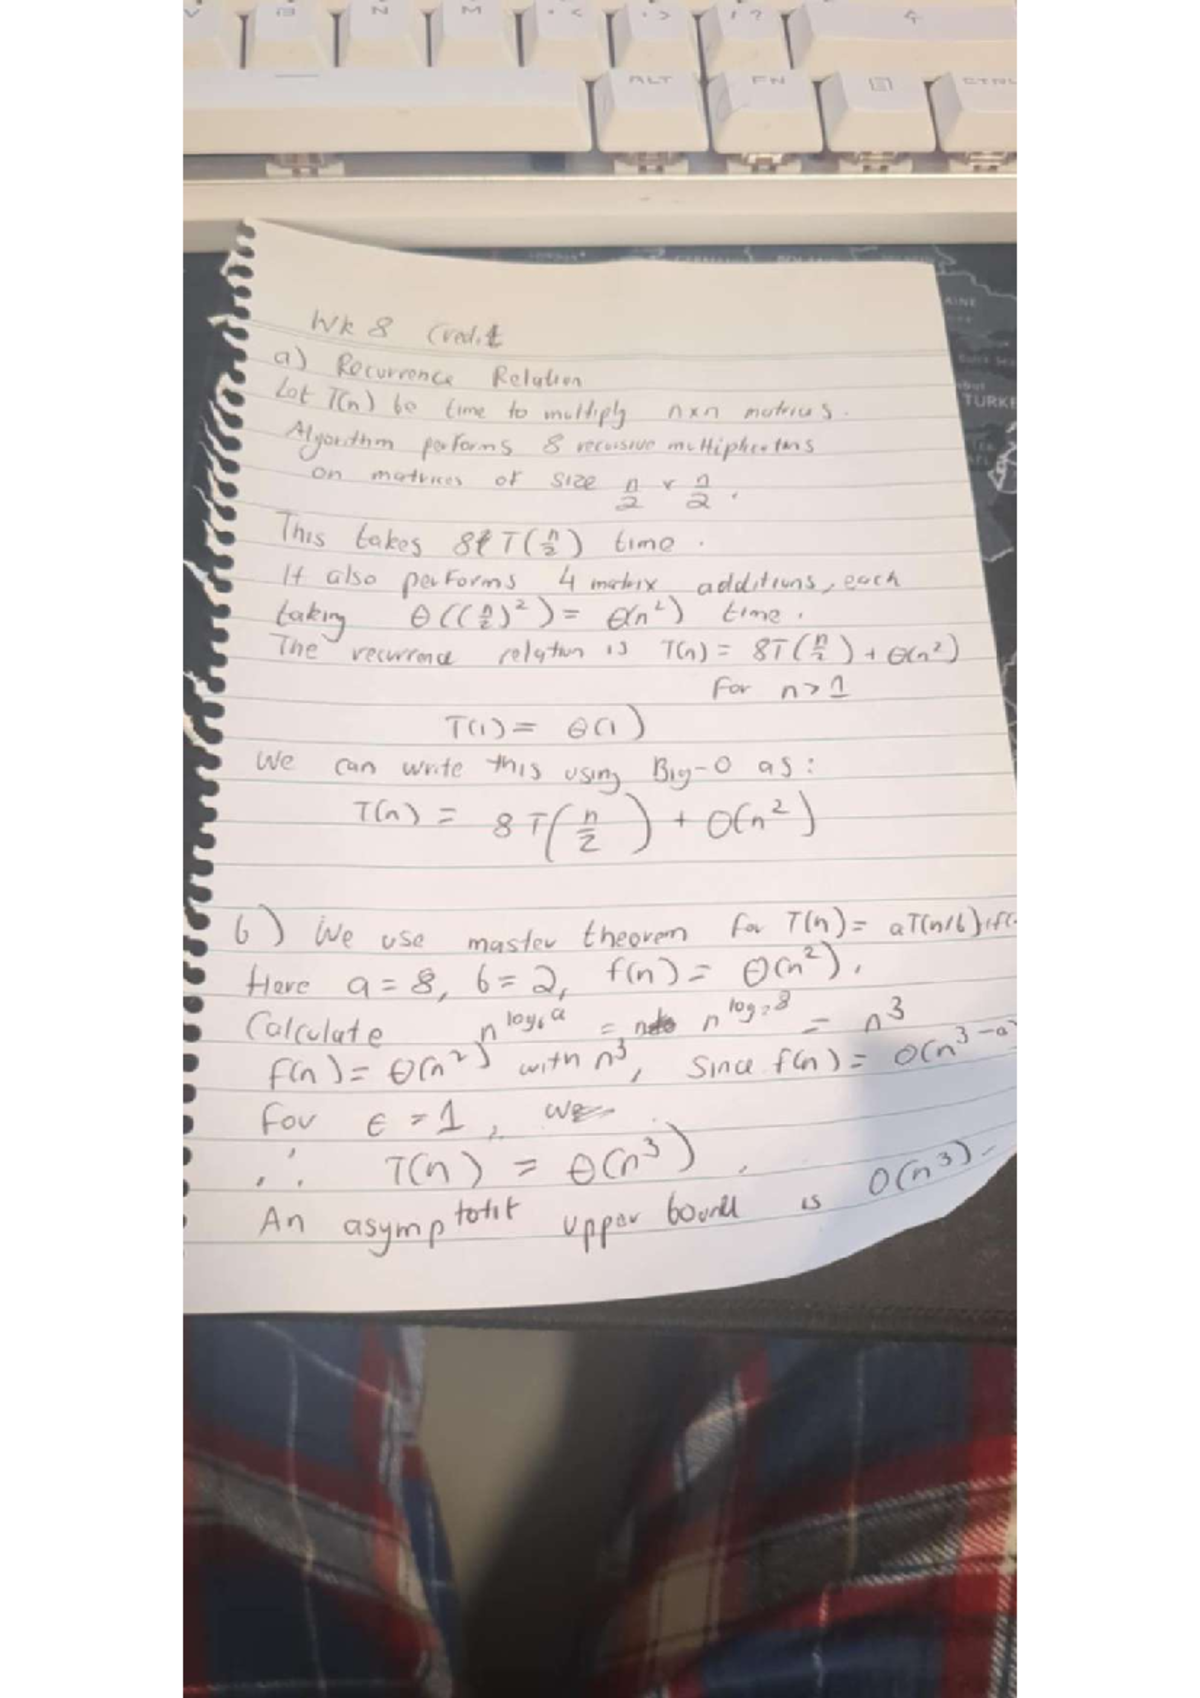 V B N M , < . > / ?
ALT FN CTRL
AINE
TURKE
Wk 8 Credit
a) Recurrence Relation
Let T(n) be time to multiply n×n matrices.
Algorithm performs 8 recursive multiplications
on matrices of size n/2 × n/2.
This takes 8 T(n/2) time.
It also performs 4 matrix additions, each
taking Θ((n/2)²) = Θ(n²) time.
The recurrence relation is T(n) = 8T(n/2) + Θ(n²)
for n > 1
T(1) = Θ(1)
We can write this using Big-O as:
T(n) = 8T(n/2) + O(n²)
b) We use master theorem for T(n) = aT(n/b)+f(
Here a = 8, b = 2, f(n) = Θ(n²),
Calculate n^log_b a = n^log_2 8 = n³
f(n) = Θ(n²) with n³, since f(n) = O(n^3-a)
for ϵ = 1,
∴ T(n) = Θ(n³),
An asymptotit upper bound is O(n³).